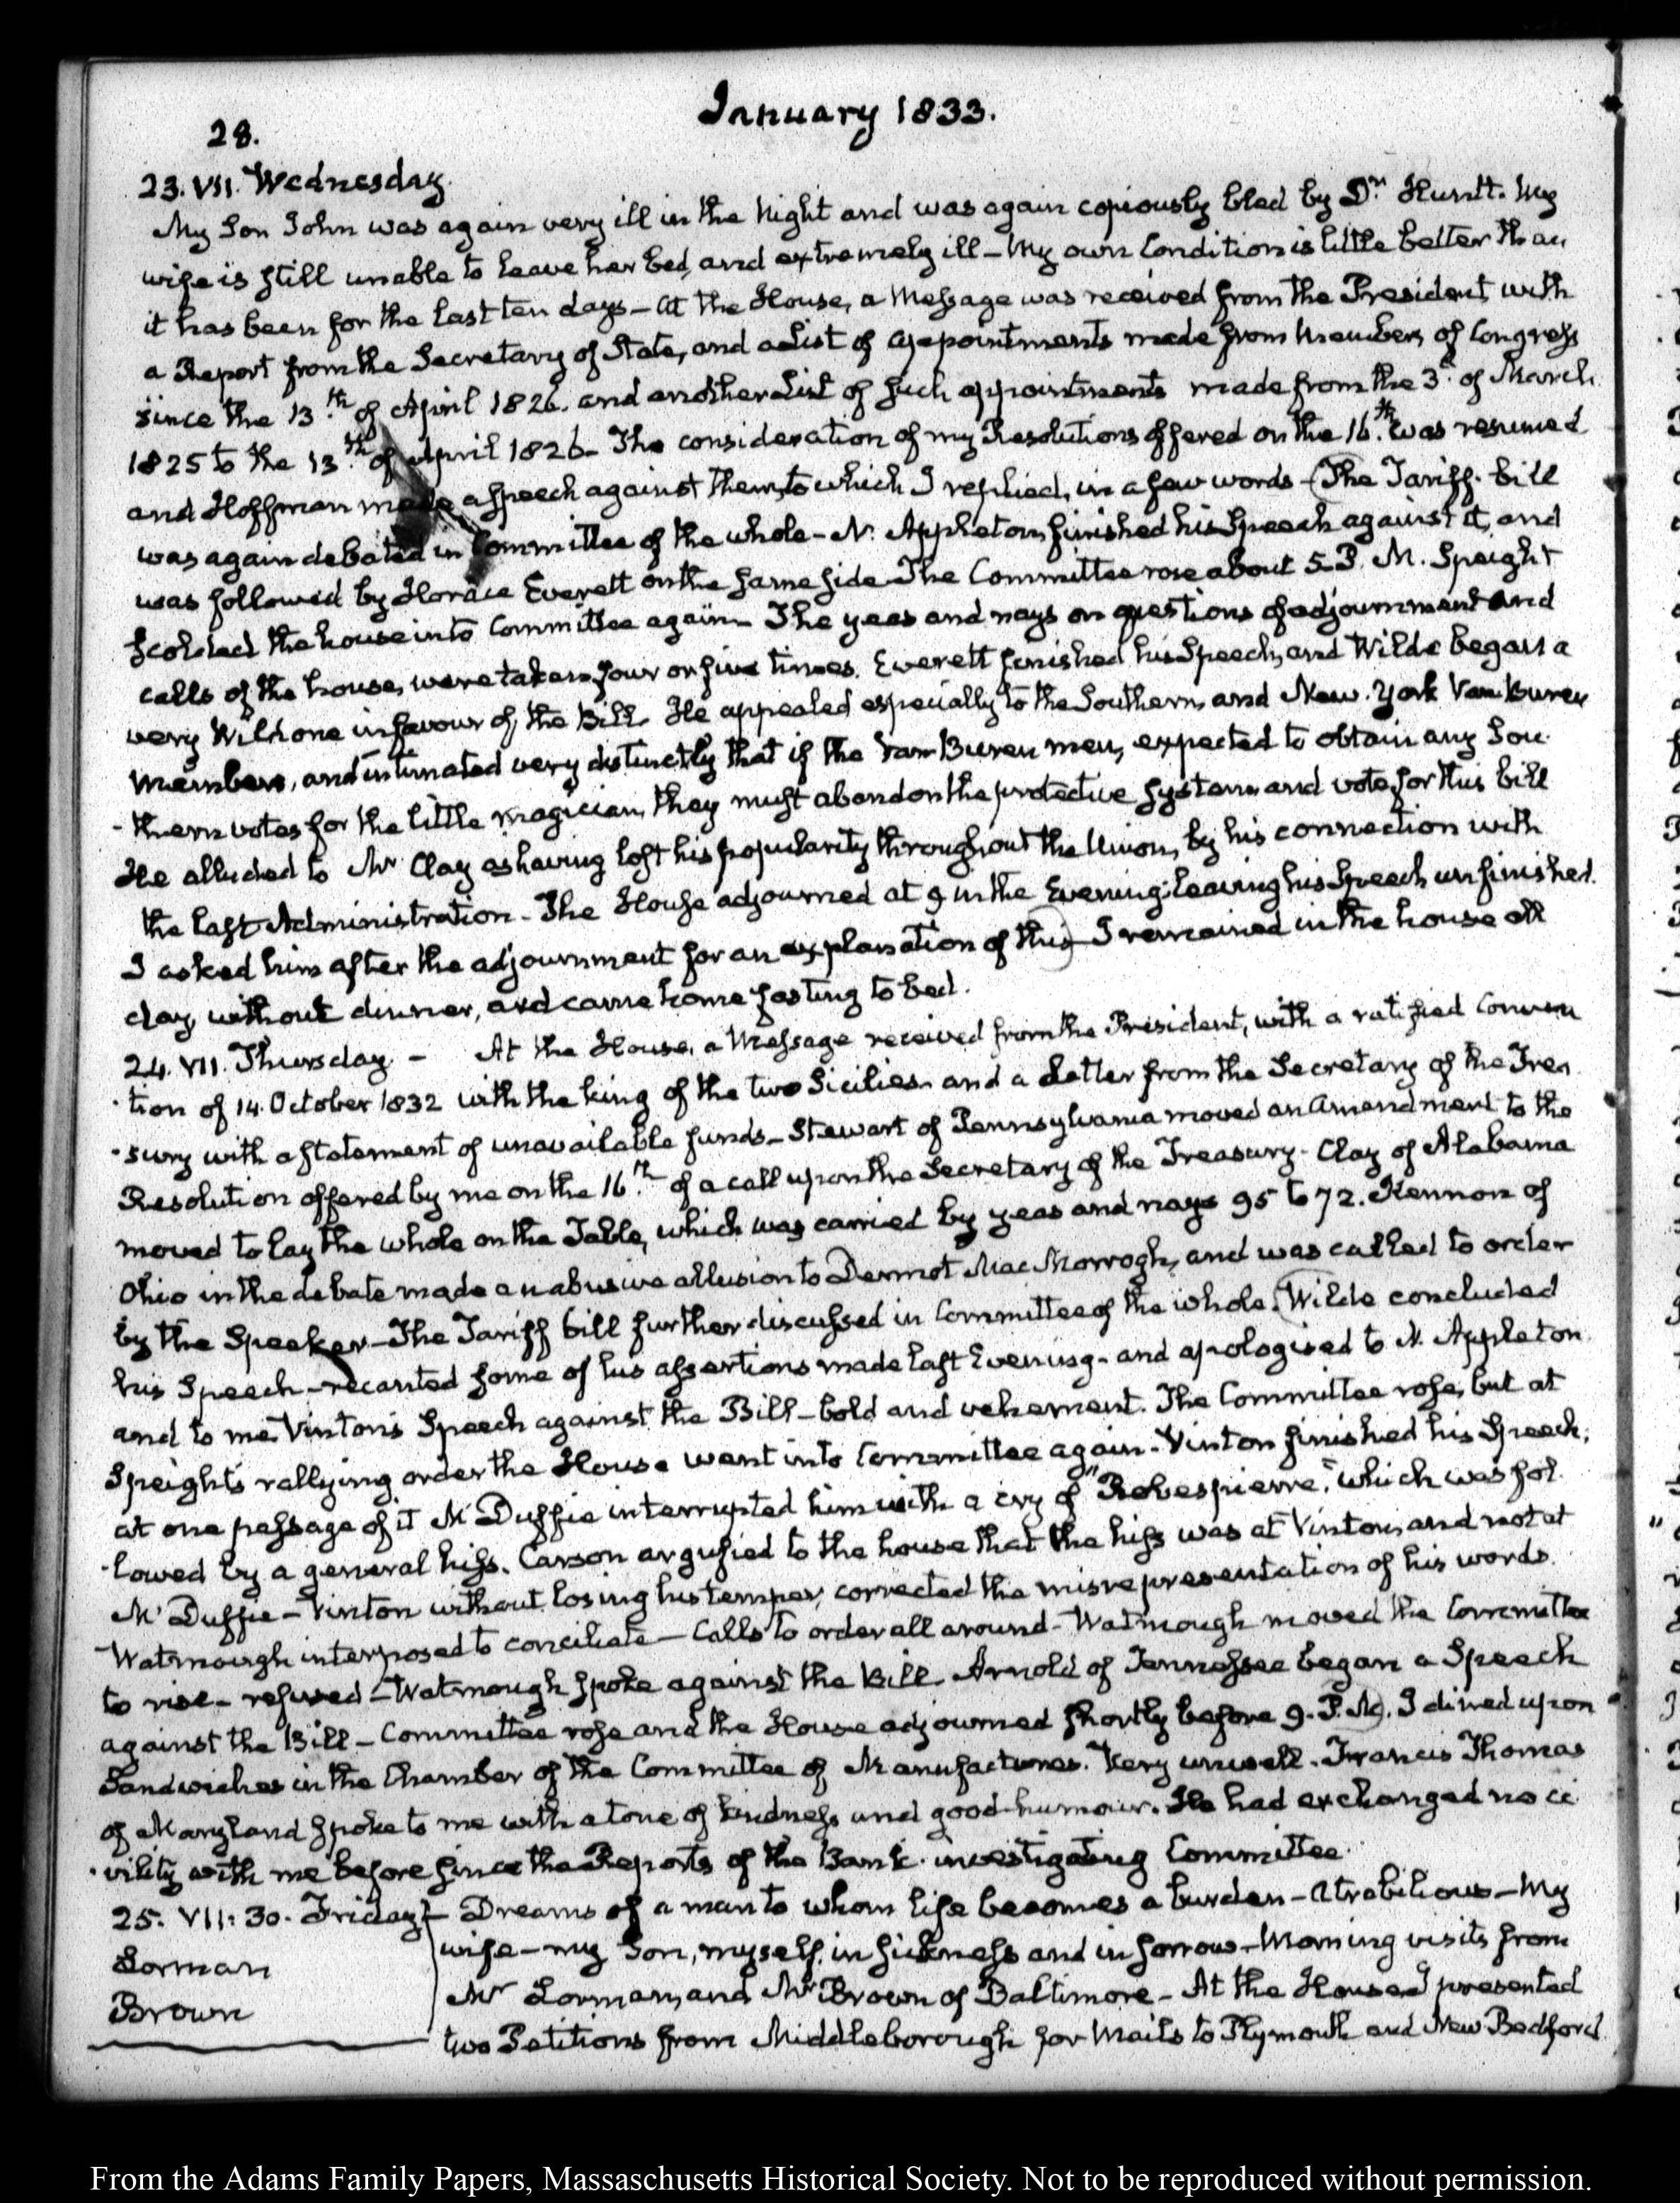 January 1833.
28.
23. VII. Wednesday.
My Son John was again very ill in the Night and was again copiously bled by Dr. Huntt. My
wife is still unable to leave her bed, and extremely ill – My own Condition is little better than
it has been for the last ten days – At the House, a Message was received from the President with
a Report from the Secretary of State, and a List of appointments made from Members of Congress
since the 13th. of April 1826. and another List of such appointments made from the 3d. of March
1825 to the 13th. of April 1826 – The consideration of my Resolutions offered on the 16th. was resumed
and Hoffman made a speech against them, to which I replied, in a few words – (The Tariff. bill
was again debated in Committee of the whole – N. Appleton finished his Speech against it, and
was followed by Horace Everett on the same side – The Committee rose about 5 P. M. Speight
scolded the house into Committee again – The yeas and nays on questions of adjournment and
calls of the house, were taken four or five times. Everett finished his Speech, and Wilde began a
very Wild one in favour of the Bill. He appealed especially to the Southern, and New-York Van Buren
Members, and intimated very distinctly that if the Van Buren men, expected to obtain any Sou-
-thern votes for the little magician, they must abandon the protective system and vote for this bill
He alluded to Mr Clay as having lost his popularity throughout the Union, by his connection with
the last Administration – The House adjourned at 9 in the Evening; leaving his Speech unfinished.
I asked him after the adjournment for an explanation of this) – I remained in the house all
day, without dinner, and came home fasting to bed.
24. VII. Thursday – At the House, a Message received from the President, with a ratified Conven
-tion of 14. October 1832 with the king of the two Sicilies and a Letter from the Secretary of the Trea
-sury with a statement of unavailable funds – Stewart of Pennsylvania moved an Amendment to the
Resolution offered by me on the 16th. of a call upon the Secretary of the Treasury – Clay of Alabama
moved to lay the whole on the Table, which was carried by yeas and nays 95 to 72. Kennon of
Ohio in the debate made an abusive allusion to Dermot MacMorrogh, and was called to order
by the Speaker – The Tariff bill further discussed in Committee of the whole. (Wilde concluded
his Speech – recanted some of his assertions made last Evening – and apologised to N. Appleton
and to me. Vinton's Speech against the Bill – bold and vehement. The Committee rose, but at
Speight's rallying order the House went into Committee again – Vinton finished his Speech;
at one passage of it McDuffie interrupted him with a cry of "Robespierre," which was fol-
-lowed by a general hiss. Carson argufied to the house that the hiss was at Vinton, and not at
McDuffie – Vinton without losing his temper, corrected the misrepresentation of his words.
Watmough interposed to conciliate – Calls to order all around – Watmough moved the Committee
to rise – refused – Watmough spoke against the Bill. Arnold of Tennessee began a Speech
against the Bill – Committee rose and the House adjourned shortly before 9. P.M.). I dined upon
Sandwiches in the Chamber of the Committee of Manufactures. Very unwell. Francis Thomas
of Maryland spoke to me with a tone of kindness and good-humour. He had exchanged no ci
-vility with me before since the Reports of the Bank-investigating Committee.
25. VII:30. Friday – Dreams of a man to whom life becomes a burden – Atrabilious – My
wife – my Son, myself, in sickness and in sorrow – Morning visits from
Lorman
Mr Lorman, and Mr Brown of Baltimore – At the House I presented
Brown
two Petitions from Middleborough for Mails to Plymouth and New Bedford
From the Adams Family Papers, Massachusetts Historical Society. Not to be reproduced without permission.